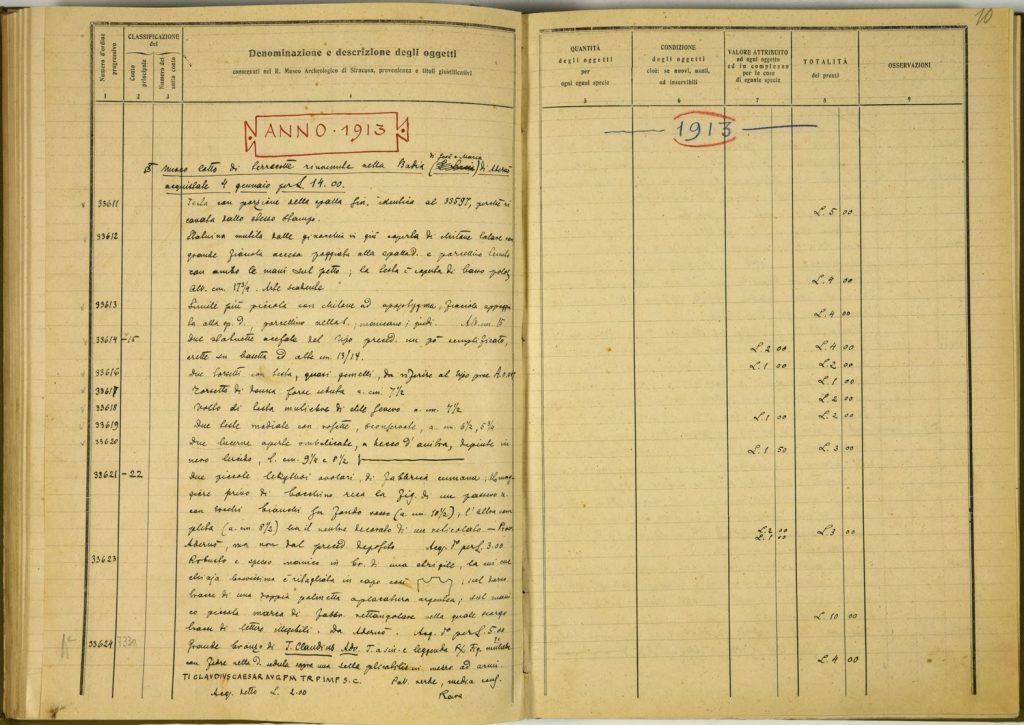 10
Numero d'ordine progressivo
CLASSIFICAZIONE
del
Conto principale
Numero del sotto conto
Denominazione e descrizione degli oggetti
conservati nel R. Museo Archeologico di Siracusa, provenienza e titoli giustificativi
QUANTITÀ
degli oggetti
per
ogni specie
CONDIZIONE
degli oggetti
cioè: se nuovi, usati,
od inservibili
VALORE ATTRIBUITO
ad ogni oggetto
ed in complesso
per le cose
di eguale specie
TOTALITÀ
dei prezzi
OSSERVAZIONI
1 2 3 4 5 6 7 8 9
ANNO · 1913
1913
Nuovo lotto di terrecotte rinvenute nella Badia di Adernò
acquistate 4 gennaio per L. 14.00.
33611 Testa con porzione della spalla sin. identica al 33597, perchè ri
cavata dallo stesso stampo. L. 5 00
33612 Statuina mutila dalle ginocchia in giù coperta di chitone talare con
grande fiaccola accesa poggiata alla spalla d. e porcellino tenuto
con ambo le mani sul petto; la testa è coperta di basso polos
Alt. cm. 17¾. Arte scadente L. 4 00
33613 Simile più piccola con chitone ad apoptygma, fiaccola appoggia
ta alla sp. d., porcellino nella s.; mancano i piedi. Alt. cm. 15 L. 4 00
33614-15 Due statuette acefale del tipo preced. un pò semplificato,
erette su basetta ed alte cm. 13/14. L. 2 00 L. 4 00
33616 Due torsetti con testa, quasi gemelli, da riferire al tipo prec. L. 1 00 L. 2 00
33617 Torsetto di donna forse seduta a. cm. 7½ L. 1 00
33618 Volto di testa muliebre di stile severo a. cm. 7½ L. 2 00
33619 Due teste modiate con rosette, a. cm. 6½, 5¾ L. 1 00 L. 2 00
33620 Due lucerne aperte ombelicate, a becco d'anitra, dipinte in
nero lucido, l. cm. 9¼ e 8½ L. 1 50 L. 3 00
33621-22 Due piccole lekythoi ariballiche, di fabbrica cumana; la mag
giore priva di bocchino reca la fig. di un
con tocchi bianchi su fondo rosso (a. cm. 10½); l'altra com
pleta (a. cm. 8½) ha il ventre decorato di un reticolato — Prov.
Adernò, ma non dal preced. deposito Acq. 1° per L. 3.00 L. 2 00 L. 1 00 L. 3 00
33623 Robusto e spesso manico in br. di una strigile, la cui cuc
chiaia bassissima è ritagliata in capo così ; sul dorso
tracce di una doppia palmetta argentea; sul mani
co piccola marca di fabbr. rettangolare nella quale scorgo
tracce di lettere illegibili. Da Adernò. Acq. 1° per L. 5.00 L. 10 00
33624 Grande bronzo di T. Claudius Aug. T. a sin. e leggenda R/ fig. muliebre
con nella d. seduta sopra una sella plicabilis in mezzo ad armi.
TI CLAUDIVS CAESAR AVG PM TR P IMP S.C. Pat. verde, media cons. L. 4 00
Acq. detto L. 2.00 Rara